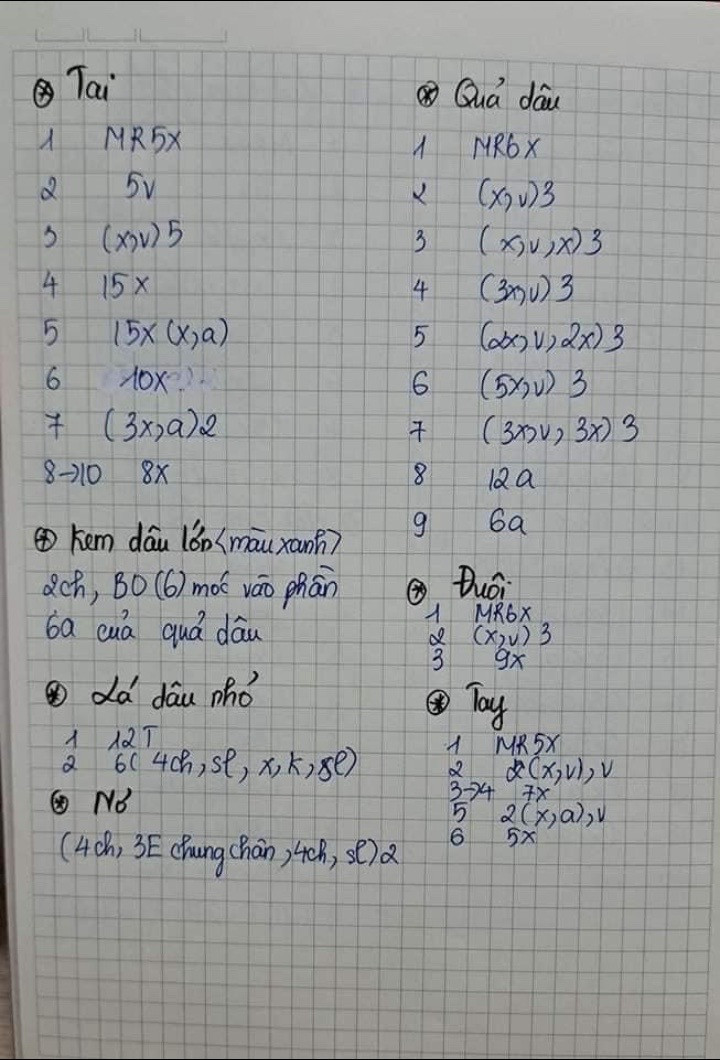 ⊛ Tai
1 MR5X
2 5V
3 (x,v)5
4 15X
5 15X(x,a)
6 10X
7 (3x,a)2
8→10 8X
⊛ Kem dâu lớn <màu xanh>
2ch, BO(6) móc vào phần
6a của quả dâu
⊛ Lá dâu nhỏ
1 12T
2 6( 4ch, sl, x, k, sl)
⊛ Nơ
(4ch, 3E chung chân, 4ch, sl)2
⊛ Quả dâu
1 MR6X
2 (x,v)3
3 (x,v,x)3
4 (3x,v)3
5 (2x,v,2x)3
6 (5x,v) 3
7 (3x,v, 3x)3
8 12a
9 6a
⊛ Đuôi
1 MR6X
2 (x,v) 3
3 9x
⊛ Tay
1 MR5X
2 2(x,v),v
3→4 7x
5 2(x,a),v
6 5x